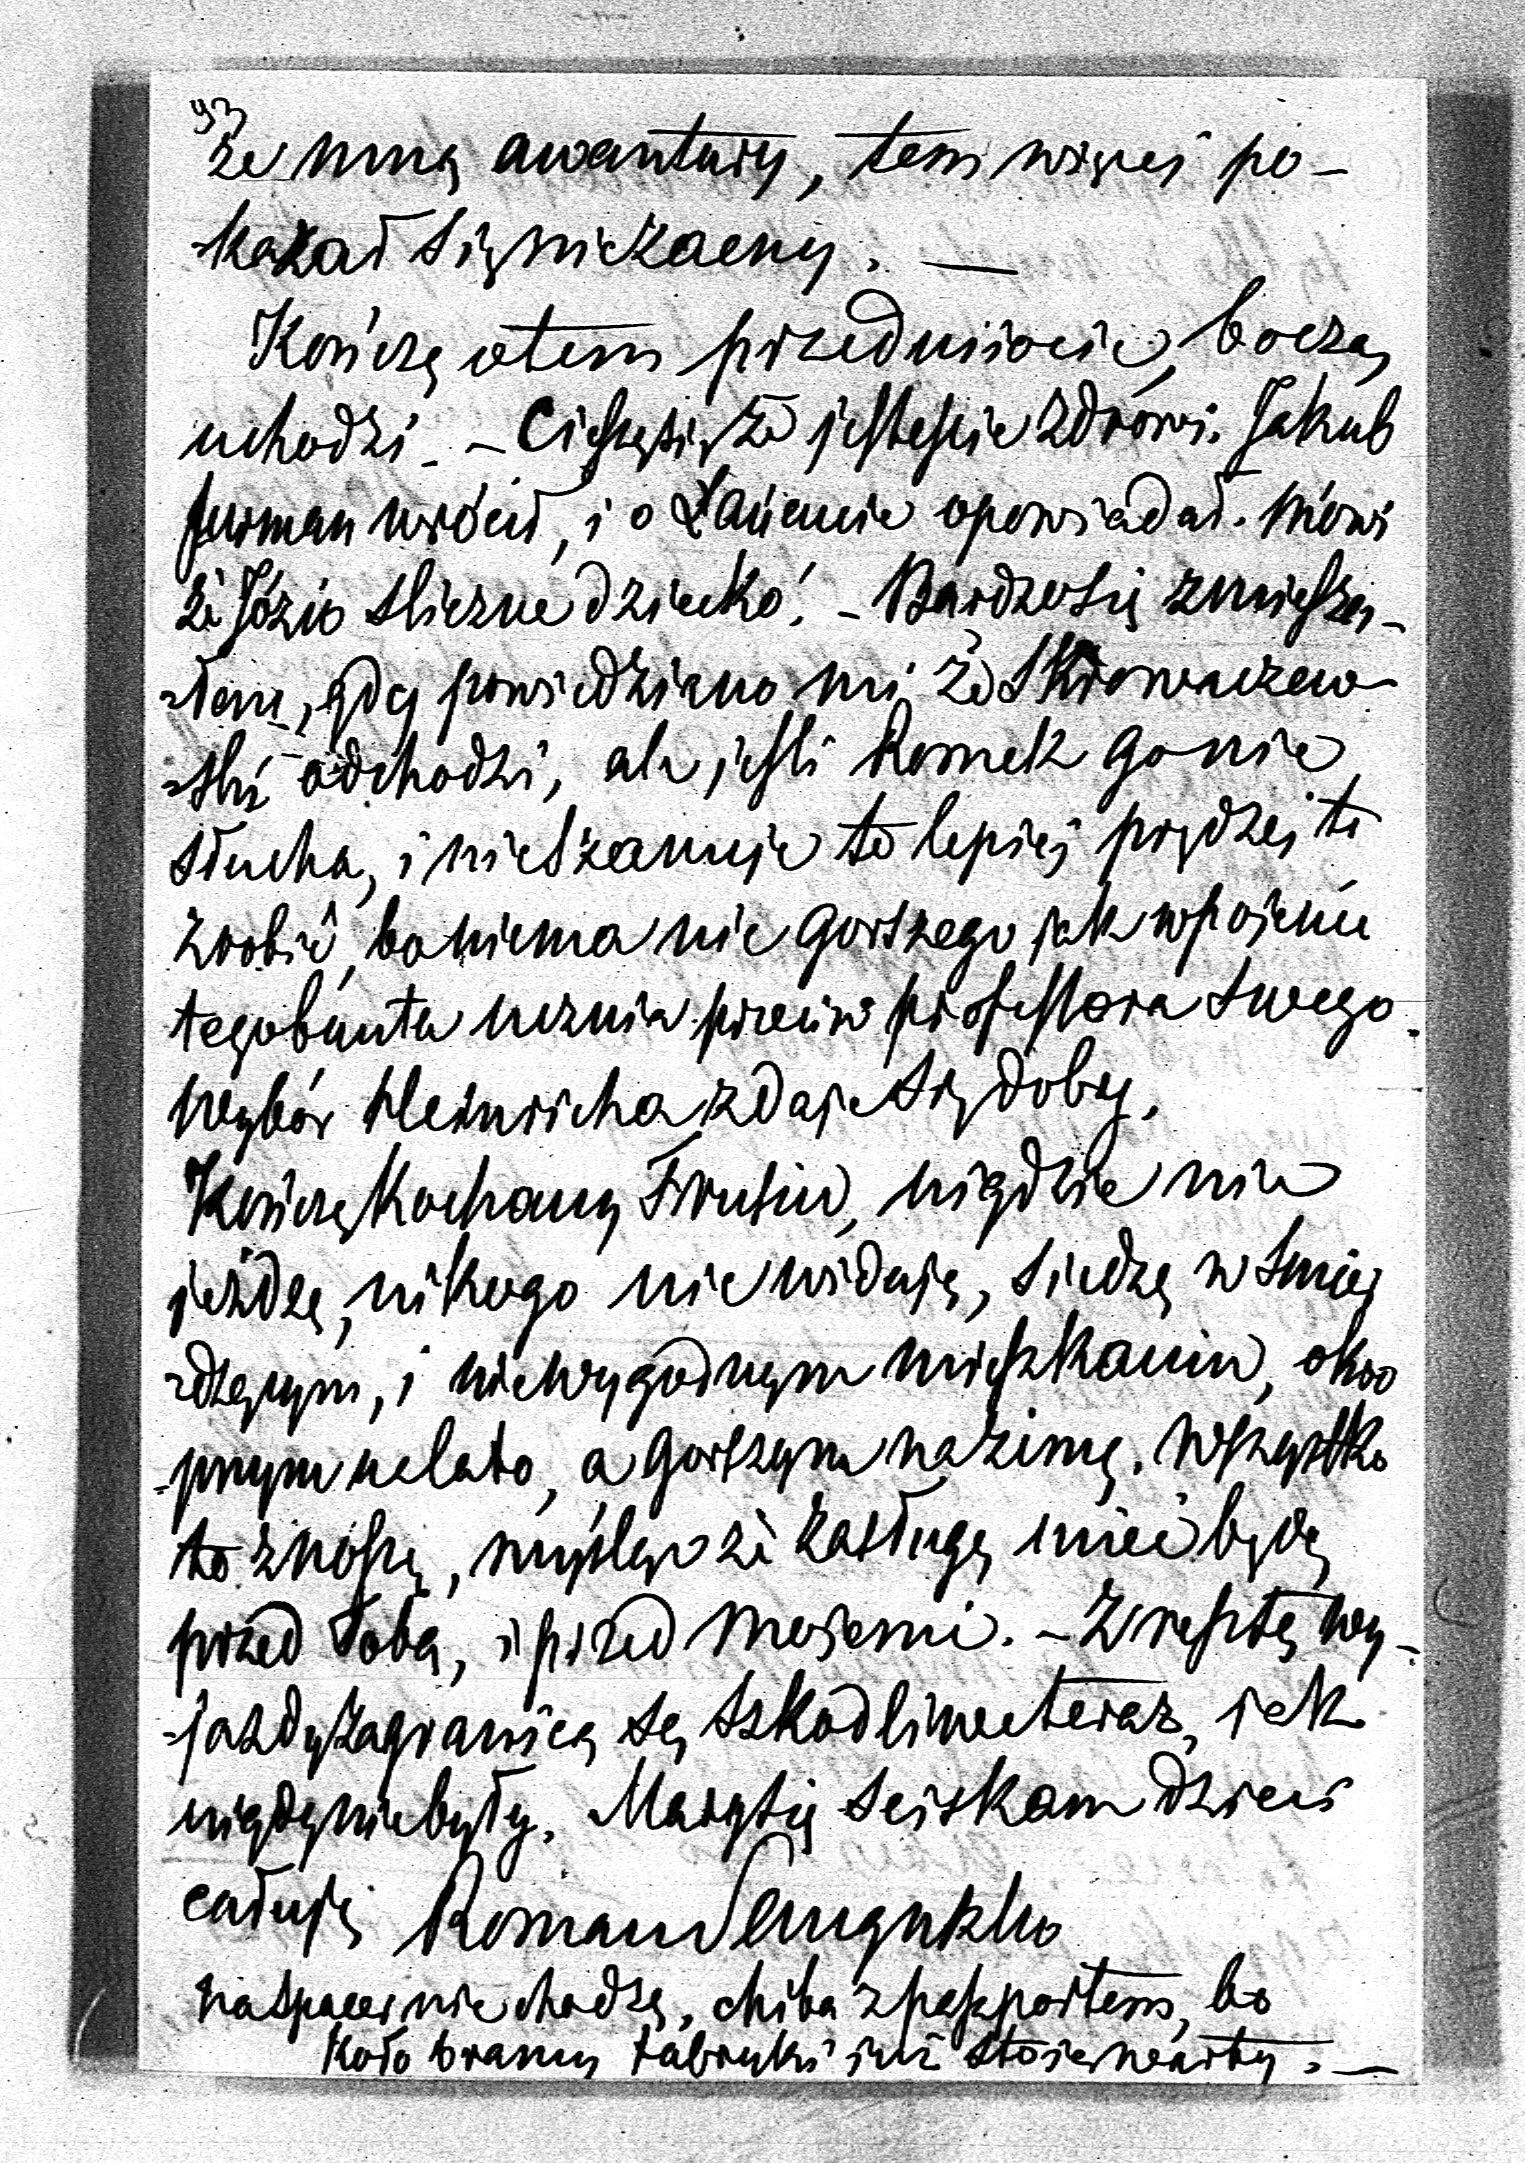 93
ze mną awantury, tem więcej po-
-kazał się niezacny. —
Kończę o tem przedmiocie, bo czas
uchodzi. - Cieszę się że jesteście zdrowi. Jakub
furman wrócił, i o Łańcucie opowiadał. Mówi
że Józio śliczne dziecko. - Bardzo się zmiesza-
-łem, gdy powiedziano mi że Skrowaczew-
-ski odchodzi, ale jeśli Romek go nie
słucha, i nie szanuje to lepiej prędzej to
zrobić, bo niema nic gorszego jak wpojenie
tego buntu ucznia przeciw professora swego.
Wybór Heinricha zdaje się dobry.
Kończę Kochany Frusiu, nigdzie nie
jeżdżę, nikogo nie widuję, siedzę w śmier-
-dzącym, i niewygodnym mieszkaniu, okro-
-pnym na lato, a gorszym na zimę. Wszystko
to znoszę, myśląc że zasługę mieć będę
przed Tobą, i przed Mojemi. - Zresztą wy-
-jazdy zagranicę są szkodliwe teraz, jak
nigdy nie były. Marysię ściskam dzieci
całuję Roman
Na spacer nie chodzę, chiba z paszportem, bo
koło bramy fabryki już stoją warty. —